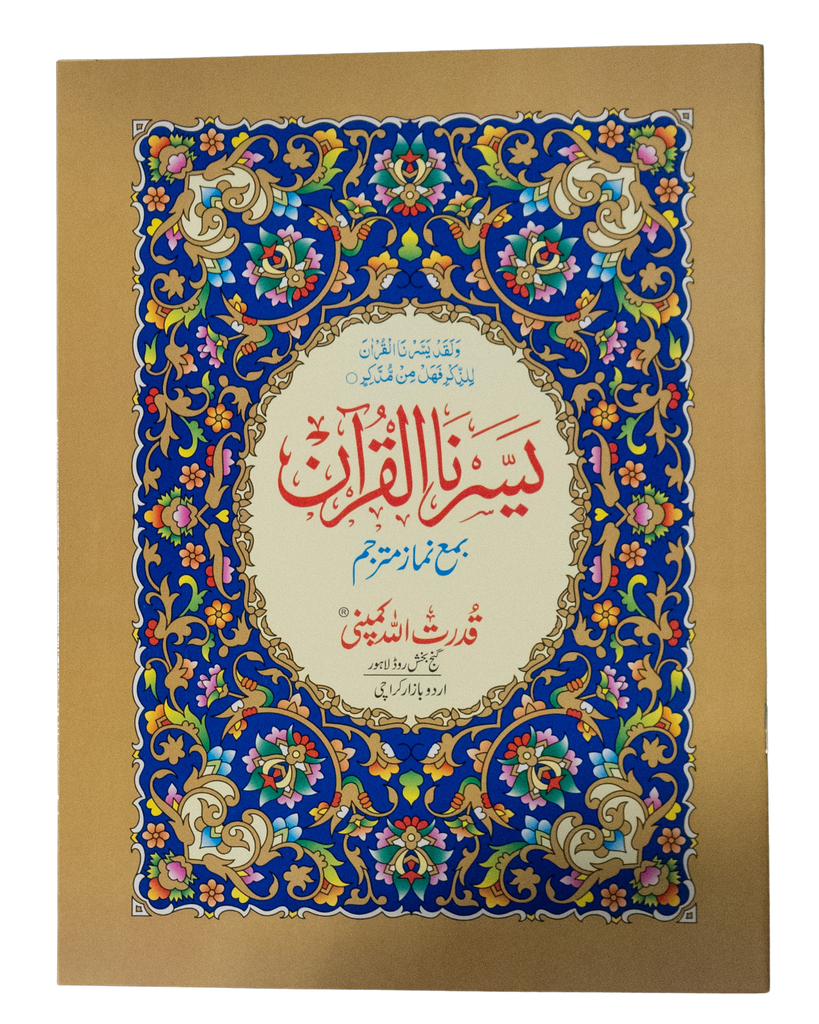 وَلَقَدْ يَسَّرْنَا الْقُرْاٰنَ
لِلذِّكْرِ فَهَلْ مِنْ مُّدَّكِرٍ ○
يَسَّرْنَا الْقُرْآن
بمع نماز مترجم
قُدرت اللہ کمپنی ®
گنج بخش روڈ لاہور
اردو بازار کراچی